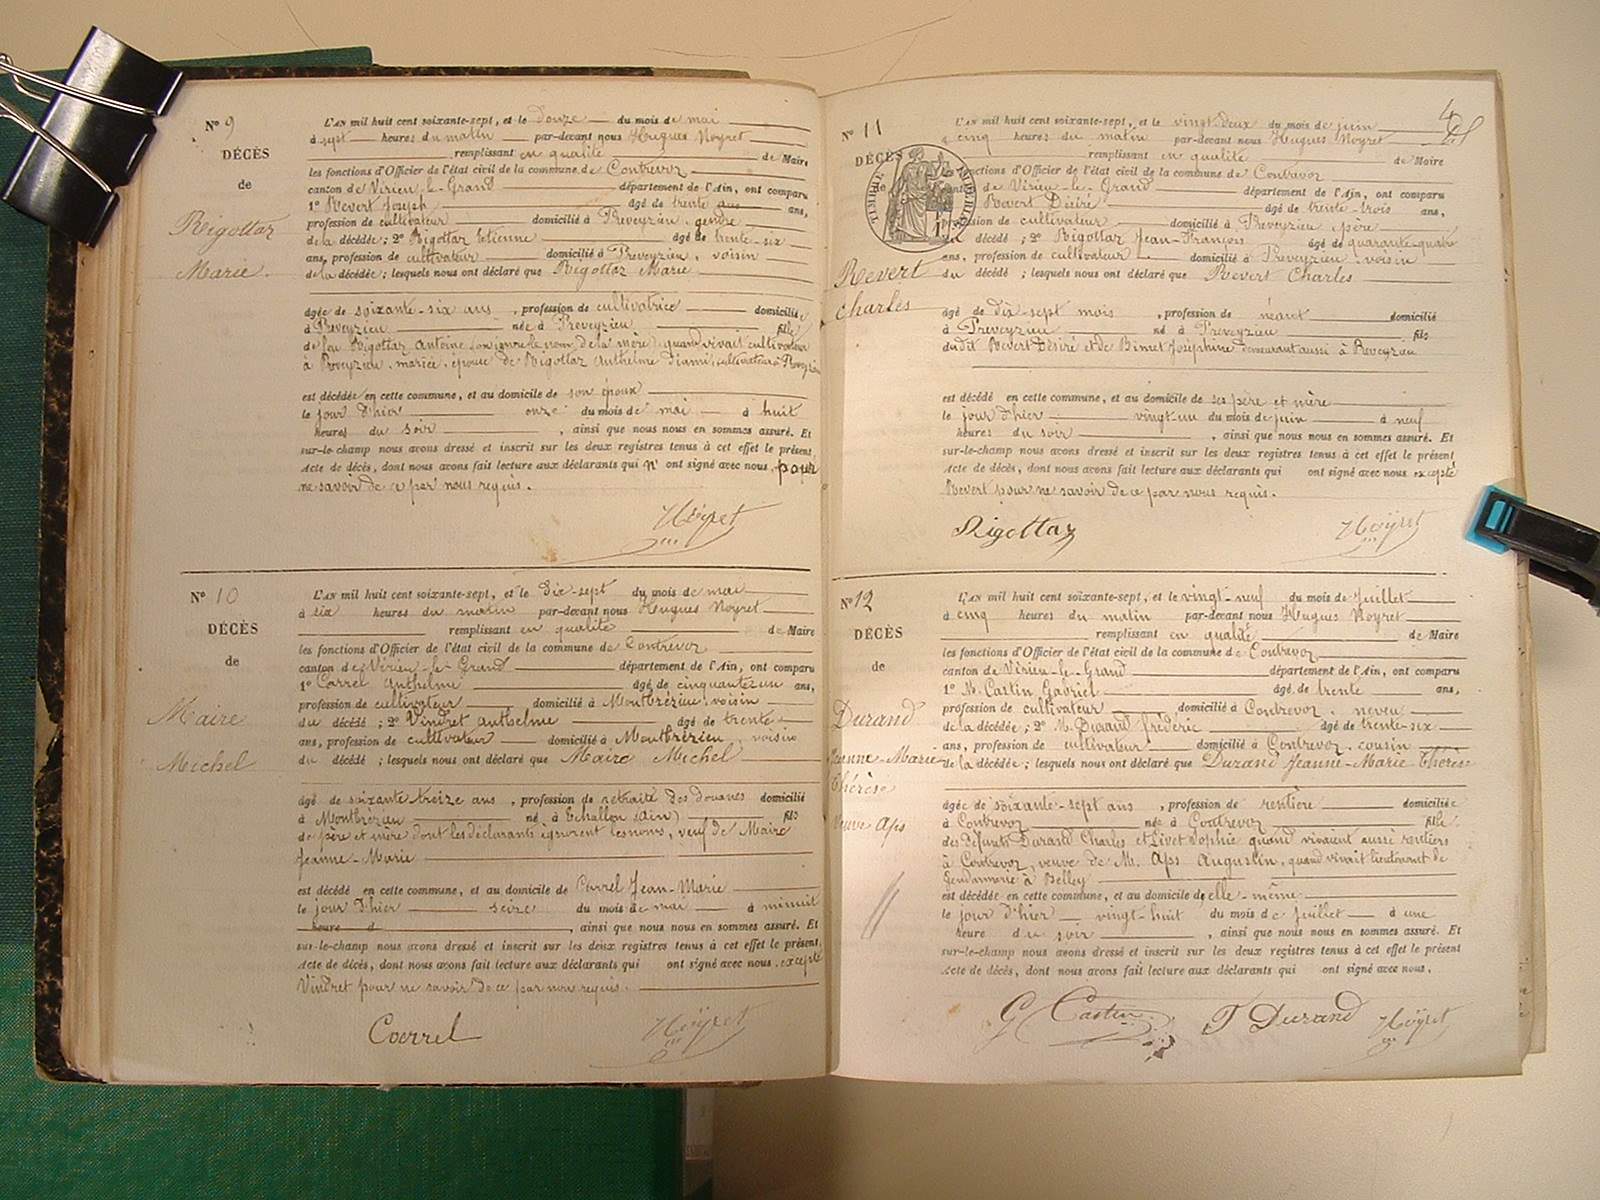 Nº 9
DÉCÈS
de
Rigottaz
Marie.
L'AN mil huit cent soixante-sept, et le douze du mois de mai
à sept heures du matin par-devant nous Hugues Noyret
remplissant en qualité de Maire
les fonctions d'Officier de l'état civil de la commune de Contrevoz
canton de Virieu-le-Grand département de l'Ain, ont comparu
1º Revert Joseph âgé de trente ans ans,
profession de cultivateur domicilié à Preveyzieu, gendre
de la décédée ; 2º Rigottaz Etienne âgé de trente-six
ans, profession de cultivateur domicilié à Preveyzieu, voisin
de la décédée ; lesquels nous ont déclaré que Rigottaz Marie
âgée de soixante-six ans, profession de cultivatrice domiciliée
à Preveyzieu née à Preveyzieu fille
de feu Rigottaz Antoine (on ignore le nom de la mère) quand vivait cultivateur
à Preveyzieu, mariée, épouse de Rigottaz Anthelme cultivateur à Preveyzieu
est décédée en cette commune, et au domicile de son époux
le jour d'hier onze du mois de mai à huit
heures du soir , ainsi que nous nous en sommes assuré. Et
sur-le-champ nous avons dressé et inscrit sur les deux registres tenus à cet effet le présent
Acte de décès, dont nous avons fait lecture aux déclarants qui n' ont signé avec nous, pour
ne savoir de ce par nous requis.
Noÿret
Nº 10
DÉCÈS
de
Maire
Michel
L'AN mil huit cent soixante-sept, et le dix-sept du mois de mai
à six heures du matin par-devant nous Hugues Noyret
remplissant en qualité de Maire
les fonctions d'Officier de l'état civil de la commune de Contrevoz
canton de Virieu-le-Grand département de l'Ain, ont comparu
1º Carrel Anthelme âgé de cinquante un ans,
profession de cultivateur domicilié à Montbrézieu, voisin
du décédé ; 2º Vindret anthelme âgé de trente
ans, profession de cultivateur domicilié à Montbrézieu, voisin
du décédé ; lesquels nous ont déclaré que Maire Michel
âgé de soixante-treize ans, profession de retraité des douanes domicilié
à Montbrézieu né à Echallon (Ain) fils
de père et mère dont les déclarants ignorent les noms, veuf de Maire
Jeanne-Marie
est décédé en cette commune, et au domicile de Carrel Jean-Marie
le jour d'hier seize du mois de mai à minuit
heure d , ainsi que nous nous en sommes assuré. Et
sur-le-champ nous avons dressé et inscrit sur les deux registres tenus à cet effet le présent
Acte de décès, dont nous avons fait lecture aux déclarants qui ont signé avec nous, excepté
Vindret pour ne savoir de ce par nous requis.
Carrel Noÿret
Nº 11
DÉCÈS
TIMBRE IMPÉRIAL
Revert
Charles
L'AN mil huit cent soixante-sept, et le vingt-deux du mois de juin
à cinq heures du matin par-devant nous Hugues Noyret
remplissant en qualité de Maire
les fonctions d'Officier de l'état civil de la commune de Contrevoz
canton de Virieu-le-Grand département de l'Ain, ont comparu
Revert Désiré âgé de trente-trois ans,
profession de cultivateur domicilié à Preveyzieu père
du décédé ; 2º Rigottaz Jean-François âgé de quarante-quatre
ans, profession de cultivateur domicilié à Preveyzieu, voisin
du décédé ; lesquels nous ont déclaré que Revert Charles
âgé de Dix-sept mois , profession de néant domicilié
à Preveyzieu né à Preveyzieu fils
dudit Revert Désiré et de Binet Joséphine demeurant aussi à Preveyzieu
est décédé en cette commune, et au domicile de ses père et mère
le jour d'hier vingt-un du mois de juin à neuf
heures du soir , ainsi que nous nous en sommes assuré. Et
sur-le-champ nous avons dressé et inscrit sur les deux registres tenus à cet effet le présent
Acte de décès, dont nous avons fait lecture aux déclarants qui ont signé avec nous excepté
Revert pour ne savoir de ce par nous requis.
Rigottaz Noÿret
Nº 12
DÉCÈS
de
Durand
Jeanne-Marie
Thérèse
veuve Aps
L'AN mil huit cent soixante-sept, et le vingt-neuf du mois de Juillet
à cinq heures du matin par-devant nous Hugues Noyret
remplissant en qualité de Maire
les fonctions d'Officier de l'état civil de la commune de Contrevoz
canton de Virieu-le-Grand département de l'Ain, ont comparu
1º M. Castin Gabriel âgé de trente ans,
profession de cultivateur domicilié à Contrevoz, neveu
de la décédée ; 2º M. Durand frédéric âgé de trente-six
ans, profession de cultivateur domicilié à Contrevoz, cousin
de la décédée ; lesquels nous ont déclaré que Durand Jeanne-Marie Thérèse
âgée de soixante-sept ans , profession de rentière domiciliée
à Contrevoz née à Contrevoz fille
des défunts Durand Charles et Livet Sophie quand vivaient aussi rentiers
à Contrevoz, veuve de M. Aps Augustin, quand vivait lieutenant de
Gendarmerie à Belley
est décédée en cette commune, et au domicile de elle-même
le jour d'hier vingt-huit du mois de Juillet à une
heure du soir , ainsi que nous nous en sommes assuré. Et
sur-le-champ nous avons dressé et inscrit sur les deux registres tenus à cet effet le présent
Acte de décès, dont nous avons fait lecture aux déclarants qui ont signé avec nous.
G Castin F Durand Noÿret